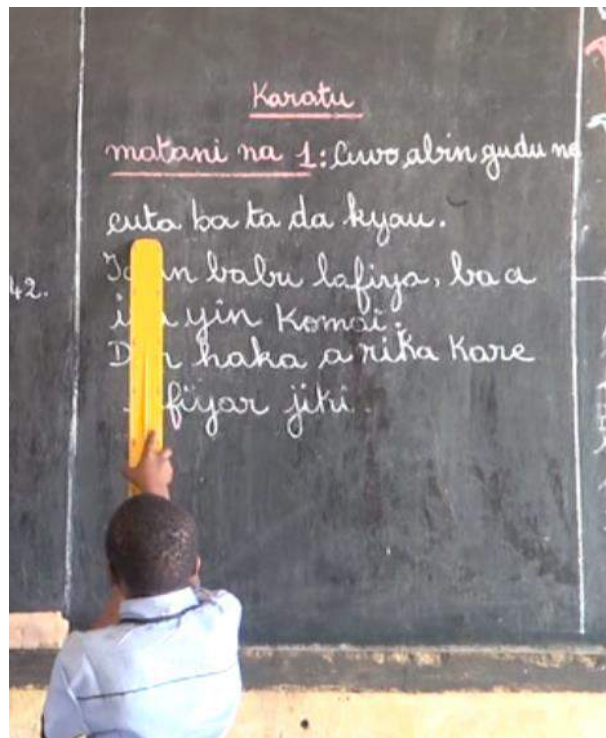 Karatu
matani na 1: Ciwo abin gudu ne
cuta ba ta da kyau.
babu lafiya, ba a
yin komai.
haka a riƙa kare
jiki.
42.